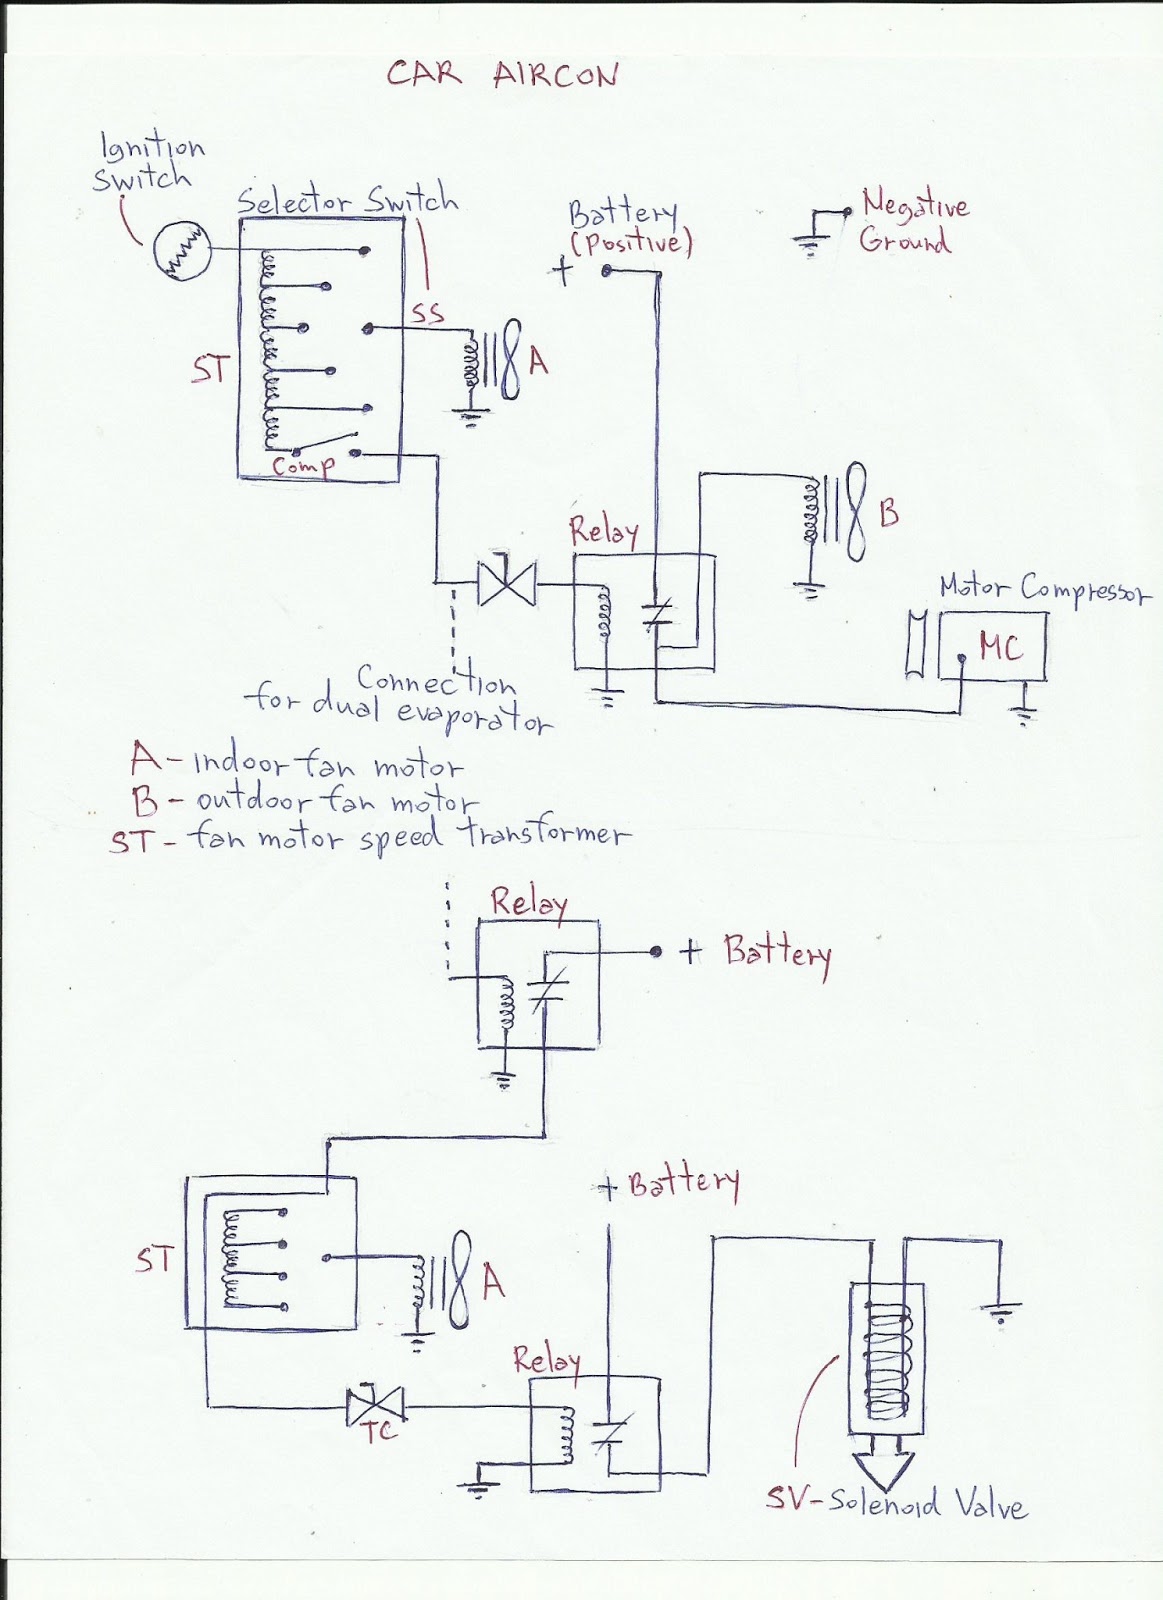 CAR AIRCON
Ignition
Switch
Selector Switch
SS
ST
Comp
A
Battery
(Positive)
+
Negative
Ground
Relay
B
Motor Compressor
MC
Connection
for dual evaporator
A - indoor fan motor
B - outdoor fan motor
ST - fan motor speed transformer
Relay
+ Battery
ST
A
+ Battery
Relay
TC
SV - Solenoid Valve